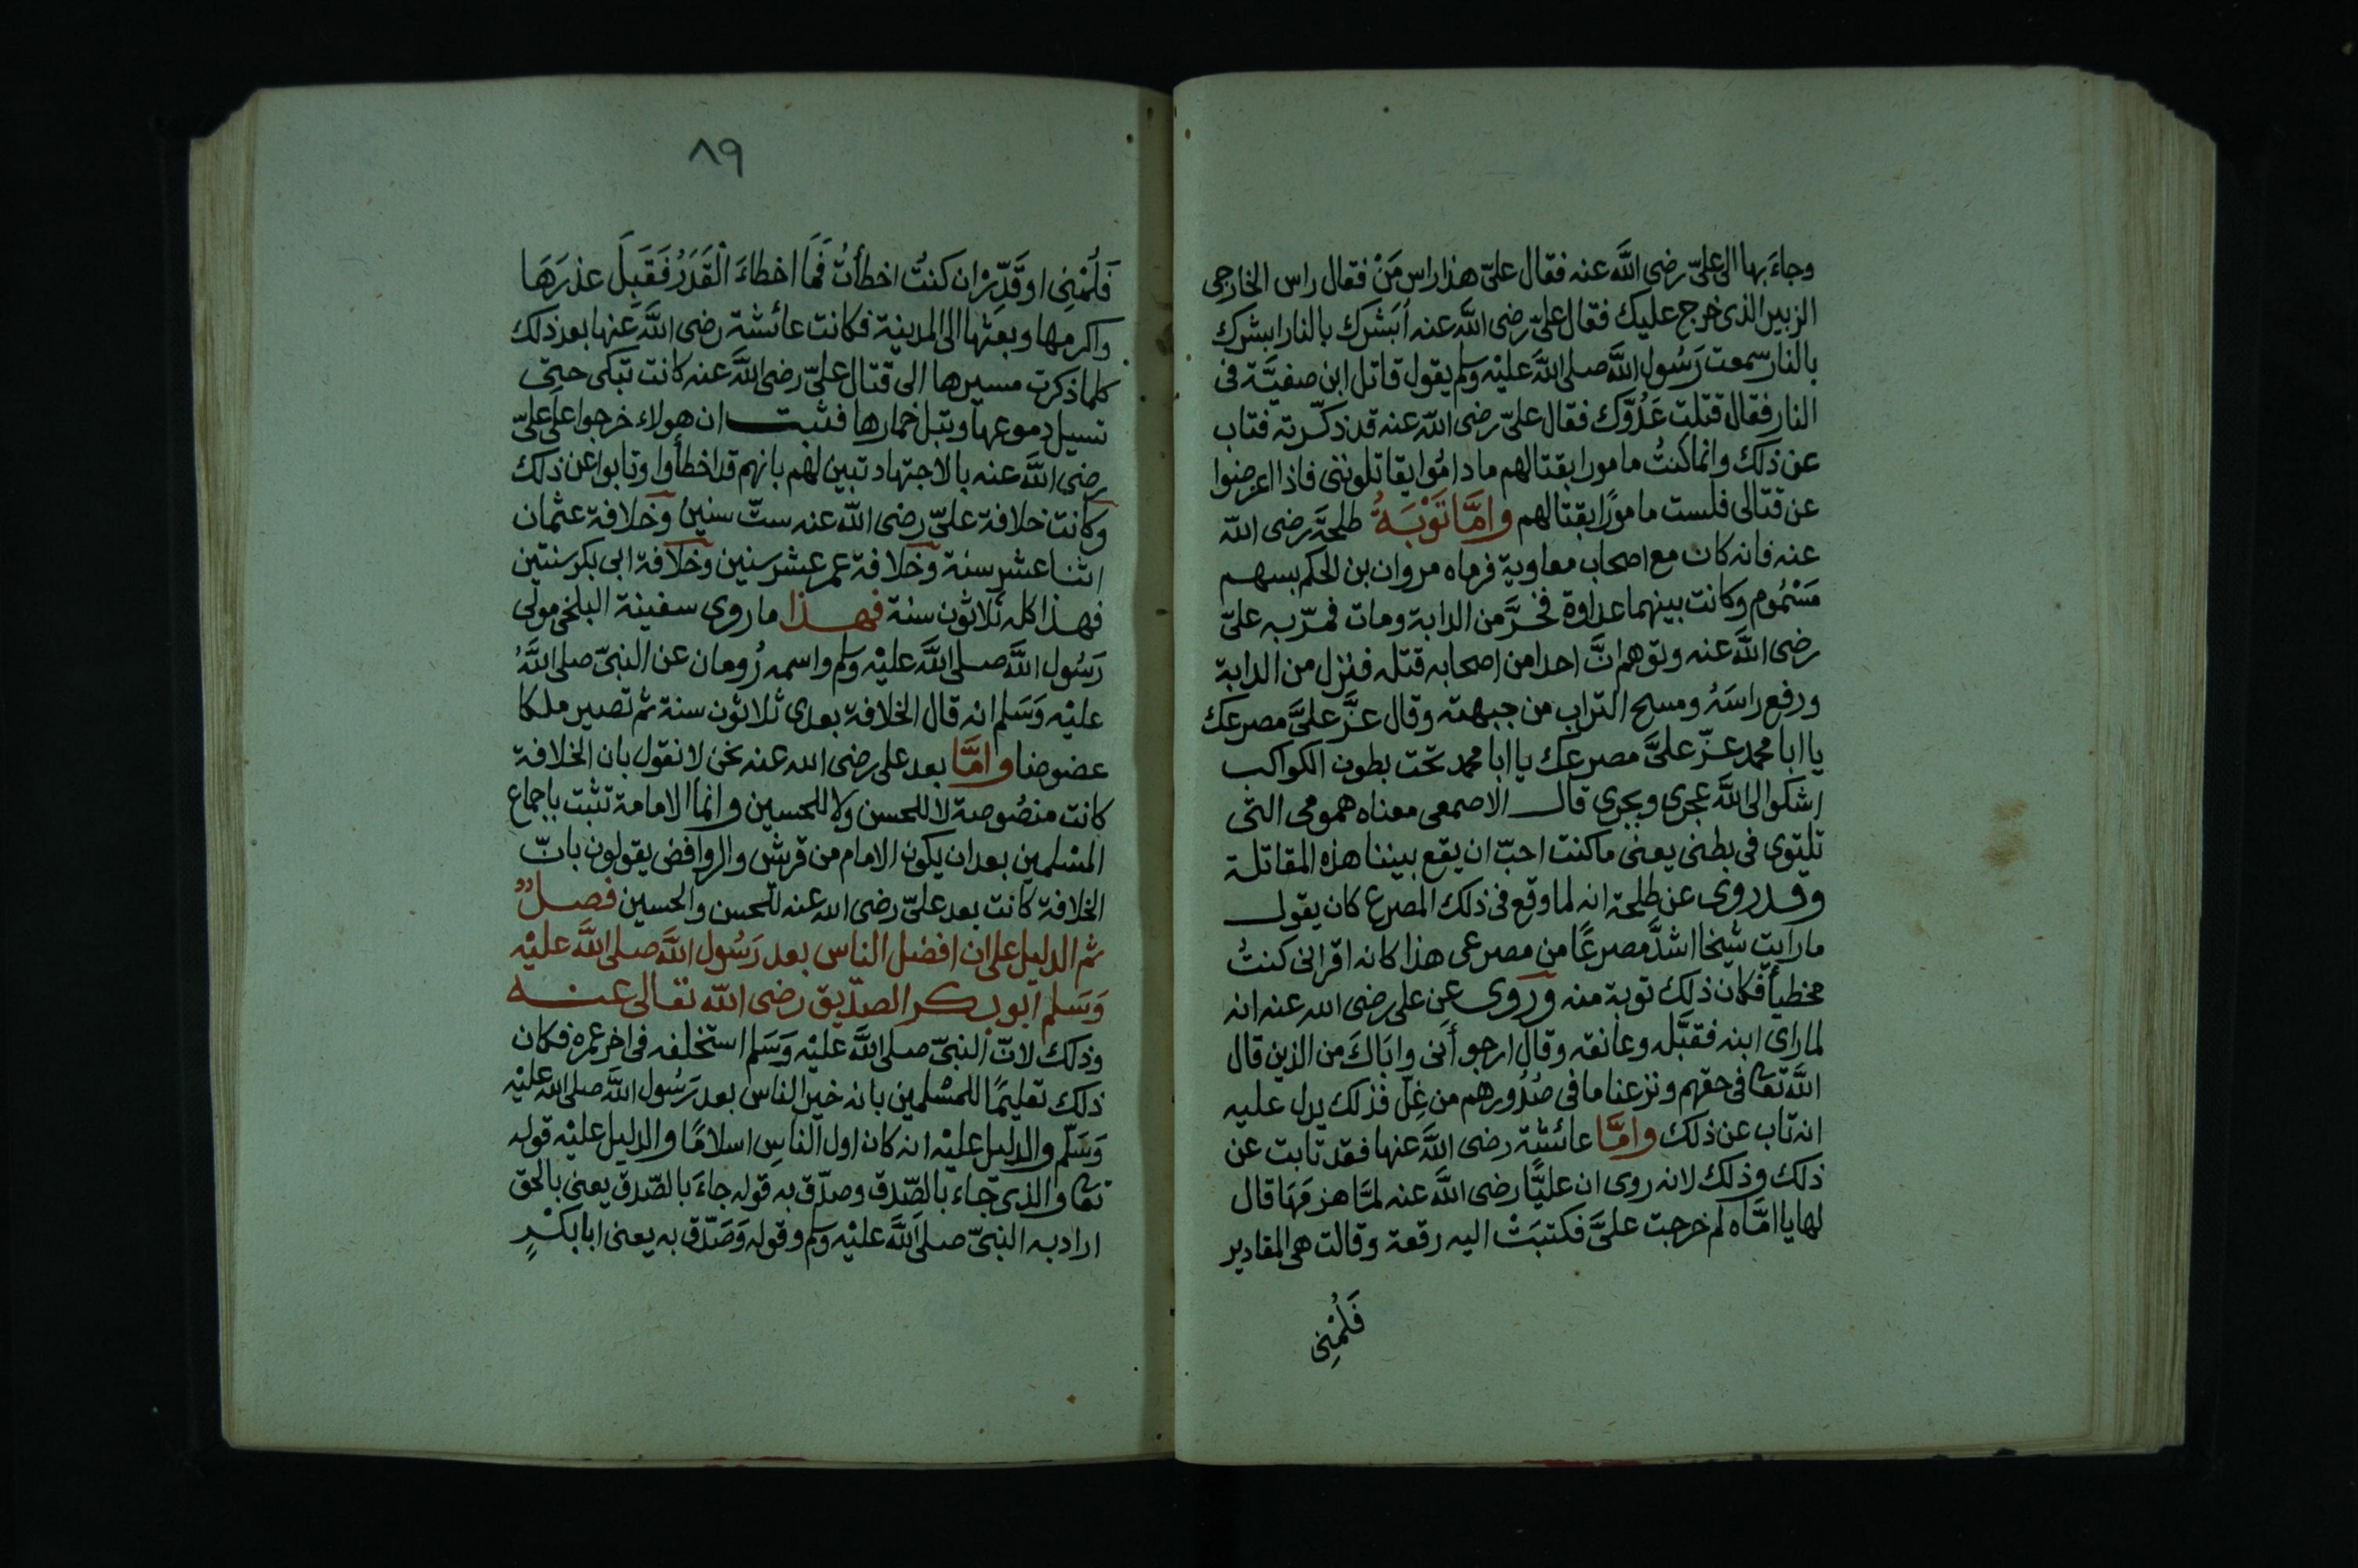 وجاءَ بها الى علىّ رضى اللَّه عنه فقال علىّ هذا راس مَنْ فقال راس الخارجى
الزبير الذى خرج عليك فقال علىّ رضى اللَّه عنه اُبَشرك بالنار ابشرك
بالنار سمعت رَسُول اللَّه صلى اللَّه عليْه وسلم يقول قاتل ابن صفيَّة فى
النار فقال قتلت عَدُوَّك فقال علىّ رضى اللَّه عنه قد ذكّرته فتاب
عن ذلك وانما كنتُ مامورا بقتالهم ما دامُوا يقاتلوننى فاذا اعرضوا
عن قتالى فلست مامورًا بقتالهم وامَّا تَوْبَةُ طلحةَ رضى اللَّه
عنه فانه كان مع اصحاب معاوية فرماه مروان بن الحكم بسهم
مَسْمُوم وكانت بينهما عداوة فخرَّ من الدابة ومات فمرّ به علىّ
رضى اللَّه عنه وتوهم انَّ احدا من اصحابه قتله فنزل من الدابة
ورفع راسَهُ ومسح التراب من جبهته وقال عزَّ علىَّ مصرعك
يا ابا محمد عزّ علىَّ مصرعك يا ابا محمد تحت بطون الكواكب
اشكوا الى اللَّه عجرى وبجرى قال الاصمعى معناه همومى التى
تلتوى فى بطنى يعنى ما كنت احبّ ان يقع بيننا هذه المقاتلة
وقد روى عن طلحة انه لما وقع فى ذلك المصرع كان يقول
ما رايت شيخا اشدَّ مصرعًا من مصرعى هذا كانه اقر انى كنتُ
مخطيأ فكان ذلك توبة منه وروى عن على رضى الله عنه انه
لما راى ابنه فقبَّله وعانقه وقال ارجو أنى واباكَ من الذين قال
اللَّه تعا فى حقهم ونزعنا ما فى صُدُورهم من غِلّ فذلك يدل عليه
انه تاب عن ذلك وامَّا عائشة رضى اللَّه عنها فقد تابت عن
ذلك وذلك لانه روى ان عليًّا رضى اللَّه عنه لمَّا هزمَهَا قال
لها يا امَّاه لم خرجت علىَّ فكتبَتْ اليه رقعة وقالت هى المقادير
فَلُمْنِى
٨٩
فَلُمْنِى او قَدِّرْ ان كنتُ اخطأتُ فَمَا اخطاءَ الْقَدَرُ فَقَبِلَ عذرَهَا
واكرمها وبعثها الى المدينة فكانت عائشة رضى اللَّه عنها بعد ذلك
كلما ذكرت مسيرها الى قتال علىّ رضى اللَّه عنه كانت تبكى حتى
تسيل دموعها وتبل خمارها فثبت ان هولاء خرجوا على علىّ
رضى اللَّه عنه بالاجتهاد تبين لهم بانهم قد اخطأوا وتابوا عن ذلك
وكانت خلافة علىّ رضى اللَّه عنه ستّ سنين وخلافة عثمان
اثنا عشر سنة وخلافة عمر عشر سنين وخلافة ابى بكر سنتين
فهذا كله ثلاثون سنة فهذا ما روى سفينة البلخى مولى
رَسُول اللَّه صلى اللَّه عليْه وسلم واسمه رُومان عن النبىّ صلى اللَّهُ
عليْه وَسَلم انه قال الخلافة بعدى ثلاثون سنة ثم تصير ملكا
عضوضا وامَّا بعد على رضى الله عنه نحن لا نقول بان الخلافة
كانت منصُوصة لا للحسن ولا للحسين وانما الامامة تثبت باجماع
المسْلمين بعد ان يكون الامام من قرش والروافض يقولون بانّ
الخلافة كانت بعد علىّ رضى الله عنه للحسن والحسين فصلٌ
ثم الدليل على ان افضل الناس بعد رَسُول اللَّه صلى اللَّه عليْه
وَسَلم ابو بكر الصدّيق رضى اللّه تعالى عنه
وذلك لانّ النبىّ صلى اللَّه عليْه وَسَلم استخلفه فى اخر عمره فكان
ذلك تعليمًا للمسْلمين بانه خير الناس بعد رَسُول اللَّه صلى اللَّه عليْه
وَسَلّم والدليل عليْه انه كان اول الناسِ اسلامًا والدليل عليْه قوله
تعا والذى جاء بالصّدق وصدّق به قوله جاءَ بالصّدق يعنى بالحق
اراد به النبىّ صلى اللَّه عليْه وسلم وقوله وَصَدّق به يعنى ابا بكْرٍ